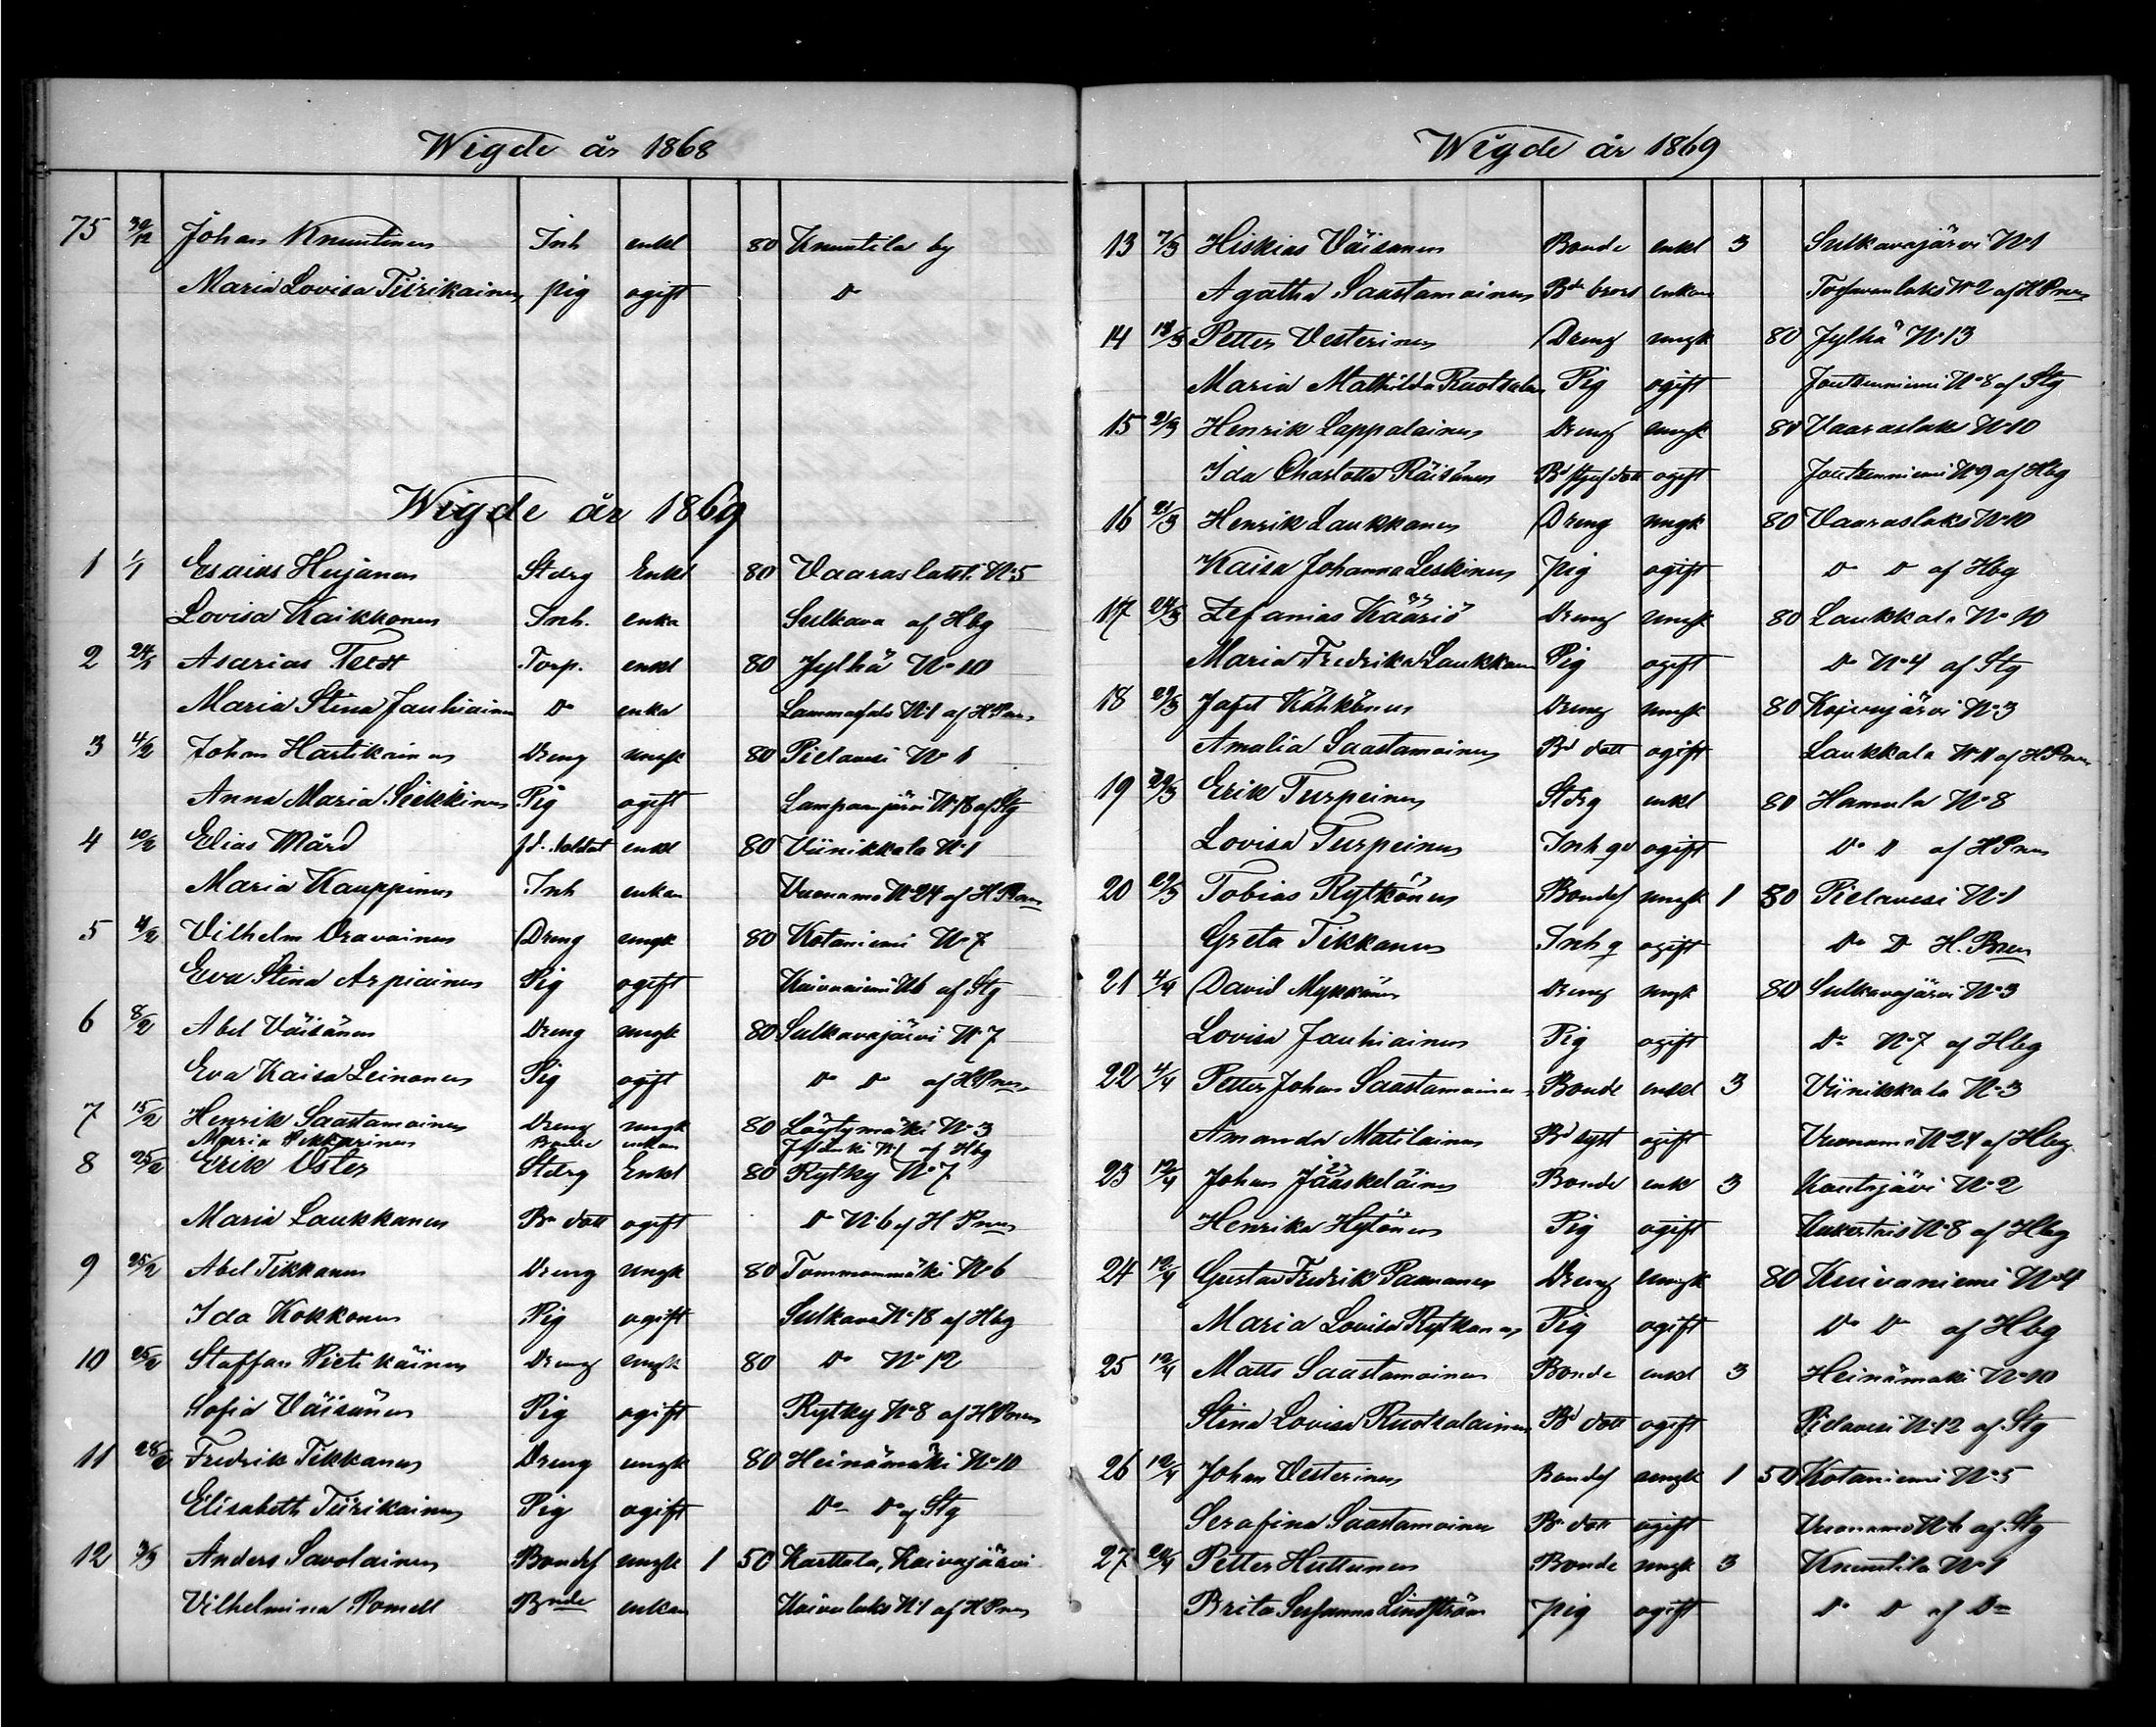 Wigde år 1868
75 30/12 Johan Knuutinen Inh enkl 80 Knuutila by
Maria Lovisa Tiirikainen pig ogift Do
Wigde år 1869
1 1/1 Esaias Hujanen Stdrg Enkl 80 Vaaraslaks No 5
Lovisa Kaikkonen Inh. enka Sulkava af Hbg
2 24/1 Asarias Terst Torp. enkl 80 Jylhä No 10
Maria Stina Jauhiainen Do enka Lammasalo No 1 af HPnen
3 4/2 Johan Hartikainen Dreng ungk 80 Pielavesi No 1
Anna Maria Siekkinen Pig ogift Lampaanjärvi No 18 af Stg
4 10/2 Elias Mård fd. soldat enkl 80 Viinikkala No 1
Maria Kauppinen Inh enkan Vuonamo No 24 af HPnen
5 4/2 Vilhelm Oravainen Dreng ungk 80 Kotaniemi No 7
Eva Stina Arpiainen Pig ogift Kuivaniemi No 6 af Stg
6 8/2 Abel Väisänen Dreng ungk 80 Sulkavajärvi No 7
Eva Kaisa Leinonen Pig ogift Do Do af HPnen
7 15/2 Henrik Saastamoinen Dreng ungk 80 Löytymäki No 3
Maria Pekkarinen Bonde enkan No 1 af Hbg
8 25/2 Erik Öster Stdrg Enkl 80 Rytky No 7
Maria Laukkanen Be dott ogift Do No 6 af H Pnen
9 25/2 Abel Tikkanen Dreng ungk 80 Tommonmäki No 6
Ida Kokkonen Pig ogift Sulkava No 18 af Hbg
10 25/2 Staffan Pietikäinen Dreng ungk 80 Do No 12
Sofia Väisänen Pig ogift Rytky No 8 af HPnen
11 28/2 Fredrik Tikkanen Dreng ungk 80 Heinämäki No 10
Elisabeth Tiirikainen Pig ogift Do Do af Stg
12 3/3 Anders Savolainen Bondes ungk 1 50 Karttula, Kaivajärvi
Vilhelmina Pomell Bnde enkan Koivulaks No 1 af HPnen
Wigde år 1869
13 7/3 Hiskias Väisänen Bonde enkl 3 Sulkavajärvi No 1
Agatha Saastamoinen Bde brors enkan No 2 af HPnen
14 18/3 Petter Vesterinen Dreng ungk 80 Jylhä No 13
Maria Mathilda Ruotsalen Pig ogift Joutsenniemi No 8 af Stg
15 21/3 Henrik Lappalainen Dreng ungk 80 Vaaraslaks No 10
Ida Charlotta Räisänen Bd styf dott ogift Joutsenniemi No 9 af Hbg
16 21/3 Henrik Laukkanen Dreng ungk 80 Vaaraslaks No 10
Kaisa Johanna Leskinen pig ogift Do Do af Hbg
17 24/3 Zefanias Kääriö Dreng ungk 80 Laukkala No 10
Maria Fredrika Laukkanen Pig ogift Do No 4 af Stg
18 29/3 Jafet Kähkönen Dreng ungk 80 Kojvujärvi No 3
Amalia Saastamoinen Bd dott ogift Laukkala No 11 af HPnen
19 29/3 Erik Turpeinen Stdrg enkl 80 Hamula No 8
Lovisa Turpeinen Inh qv ogift Do D af HPnen
20 29/3 Tobias Rytkönen Bondes ungk 1 50 Pielavesi No 1
Greta Tikkanen Inh q ogift Do D H. Pnen
21 4/4 David Mykkänen Dreng ungk 80 Sulkavajärvi No 3
Lovisa Jauhiainen Pig ogift Do No 7 af Hbg
22 4/4 Petter Johan Saastamoinen Bonde enkl 3 Viinikkala No 3
Amanda Matilainen Bd syst ogift Vuonamo No 24 af Hbg
23 12/4 Johan Jääskeläinen Bonde enk 3 No 2
Henrika Hytönen Pig ogift No 8 af Hbg
24 12/4 Gustav Fredrik Paananen Dreng ungk 80 Kuivaniemi No 4
Maria Lovisa Rytkönen Pig ogift Do Do af Hbg
25 12/4 Matts Saastamoinen Bonde enkl 3 Heinämäki No 10
Stina Lovisa Ruotsalainen Bd dott ogift Pielavesi No 12 af Stg
26 12/4 Johan Vesterinen Bondes ungk 1 50 Kotaniemi No 5
Serafina Saastamoinen Be dott ogift Vuonamo No 6 af Stg
27 24/4 Petter Huttunen Bonde ungk 3 Knuutila No 1
Brita Susanna Lindström pig ogift Do D af Do